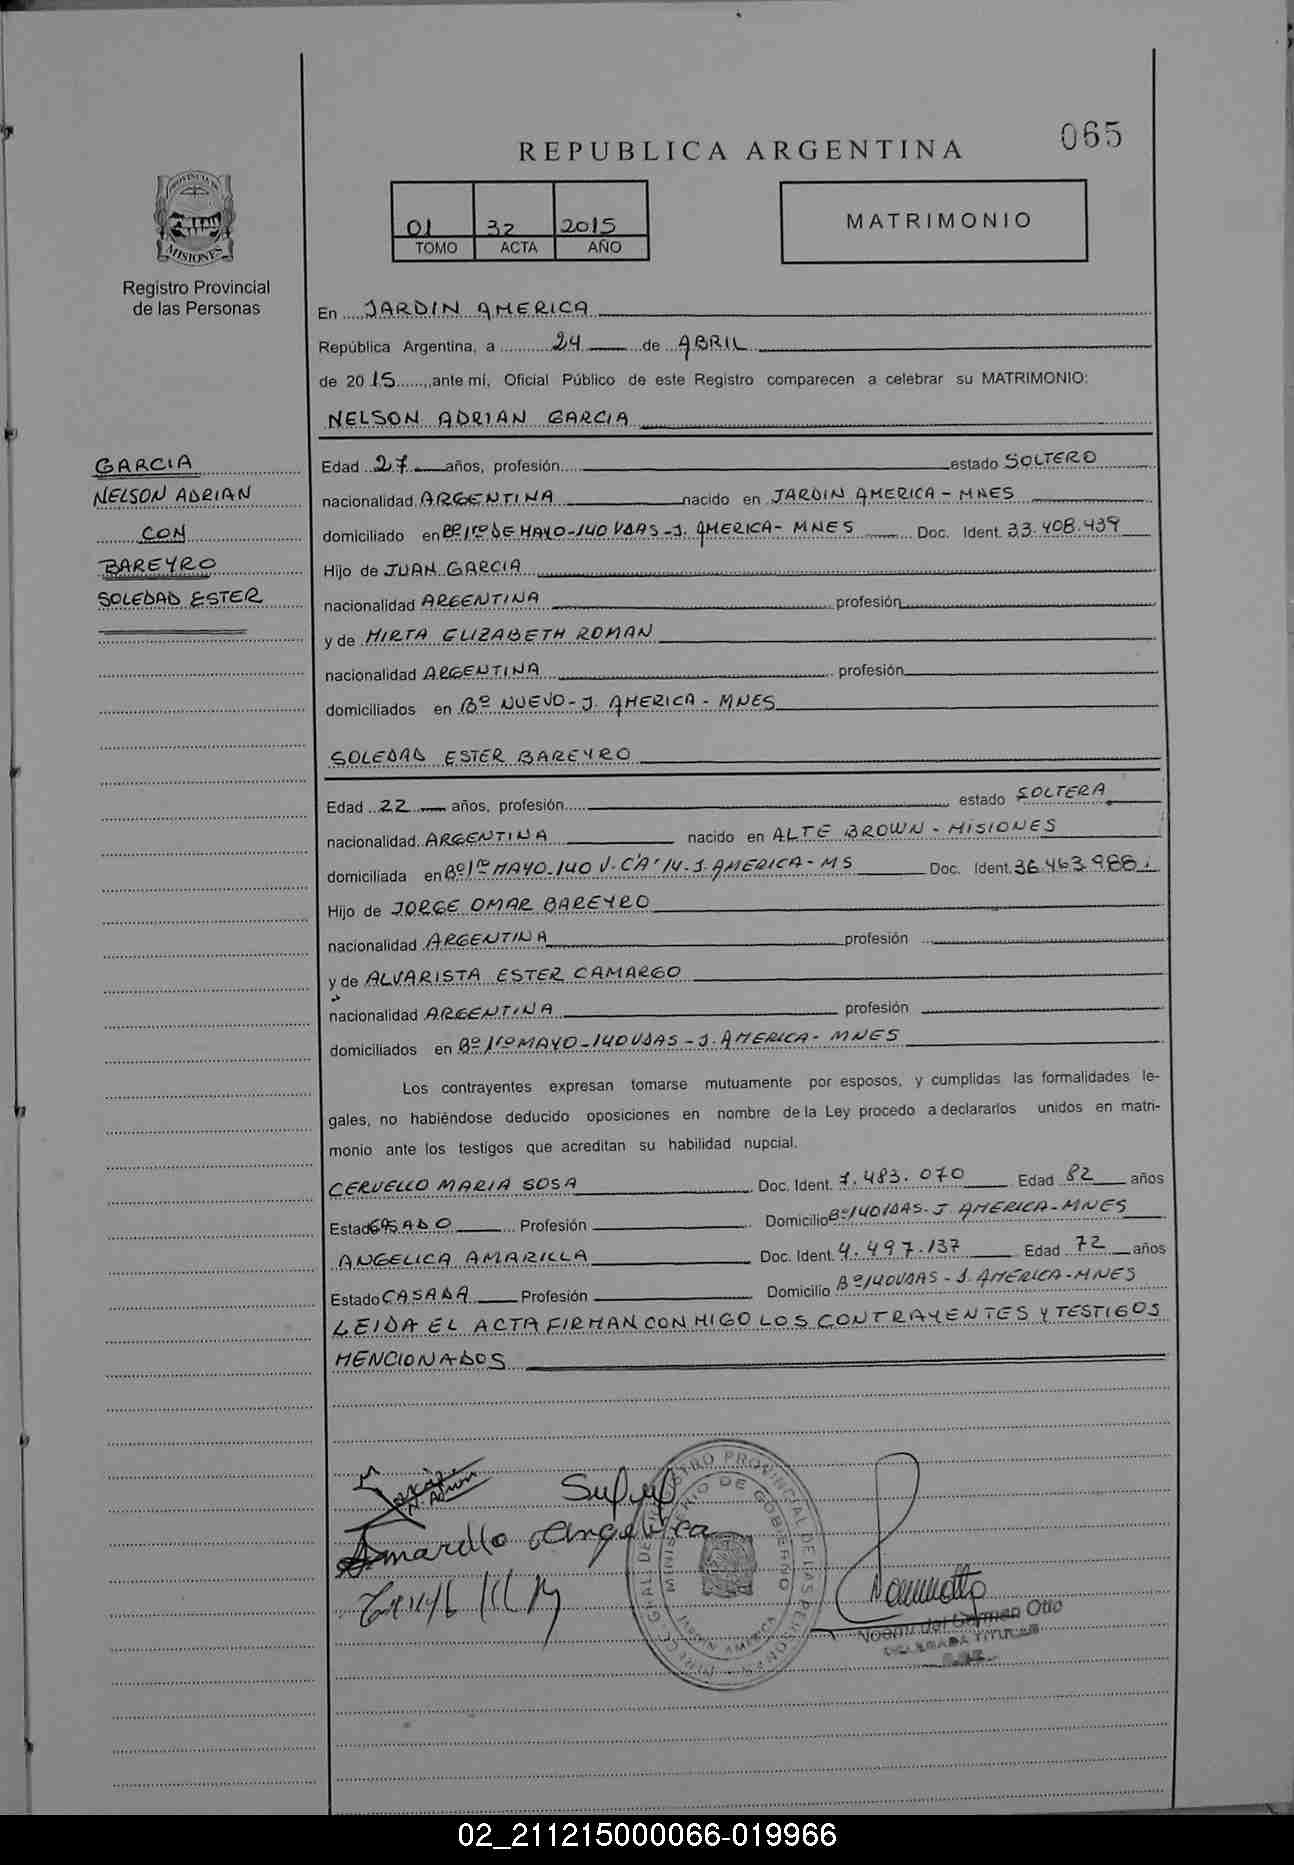 065
REPUBLICA ARGENTINA
PROVINCIA DE
MISIONES
Registro Provincial
de las Personas
01 32 2015
TOMO ACTA AÑO
MATRIMONIO
En JARDIN AMERICA
República Argentina, a 24 de ABRIL
de 2015, ante mí, Oficial Público de este Registro comparecen a celebrar su MATRIMONIO:
NELSON ADRIAN GARCIA
GARCIA
NELSON ADRIAN
CON
BAREYRO
SOLEDAD ESTER
Edad 27 años, profesión estado SOLTERO
nacionalidad ARGENTINA nacido en JARDIN AMERICA - MNES
domiciliado en Bº 1ro DE MAYO-140 VDAS-J. AMERICA- MNES Doc. Ident. 33.408.439
Hijo de JUAN GARCIA
nacionalidad ARGENTINA profesión
y de MIRTA ELIZABETH ROMAN
nacionalidad ARGENTINA profesión
domiciliados en Bº NUEVO - J. AMERICA - MNES
SOLEDAD ESTER BAREYRO
Edad 22 años, profesión estado SOLTERA
nacionalidad ARGENTINA nacido en ALTE BROWN - MISIONES
domiciliada en Bº 1ro MAYO-140 V. C"A" 14-J. AMERICA- MS Doc. Ident. 36.463.988
Hijo de JORGE OMAR BAREYRO
nacionalidad ARGENTINA profesión
y de ALVARISTA ESTER CAMARGO
nacionalidad ARGENTINA profesión
domiciliados en Bº 1ro MAYO-140 VDAS - J. AMERICA- MNES
Los contrayentes expresan tomarse mutuamente por esposos, y cumplidas las formalidades le-
gales, no habiéndose deducido oposiciones en nombre de la Ley procedo a declararlos unidos en matri-
monio ante los testigos que acreditan su habilidad nupcial.
CERVELLO MARIA SOSA Doc. Ident. 7.483.070 Edad 82 años
Estado CASADO Profesión Domicilio Bº 140 VDAS- J. AMERICA-MNES
ANGELICA AMARILLA Doc. Ident. 4.497.137 Edad 72 años
Estado CASADA Profesión Domicilio Bº 140 VDAS - J. AMERICA-MNES
LEIDA EL ACTA FIRMAN CONMIGO LOS CONTRAYENTES Y TESTIGOS
MENCIONADOS
N. Adrian
Amarilla Angelica
REGISTRO PROVINCIAL DE LAS PERSONAS
MINISTERIO DE GOBIERNO
JARDIN AMERICA
Noemi del Carmen Otto
DELEGADA TITULAR
02_211215000066-019966